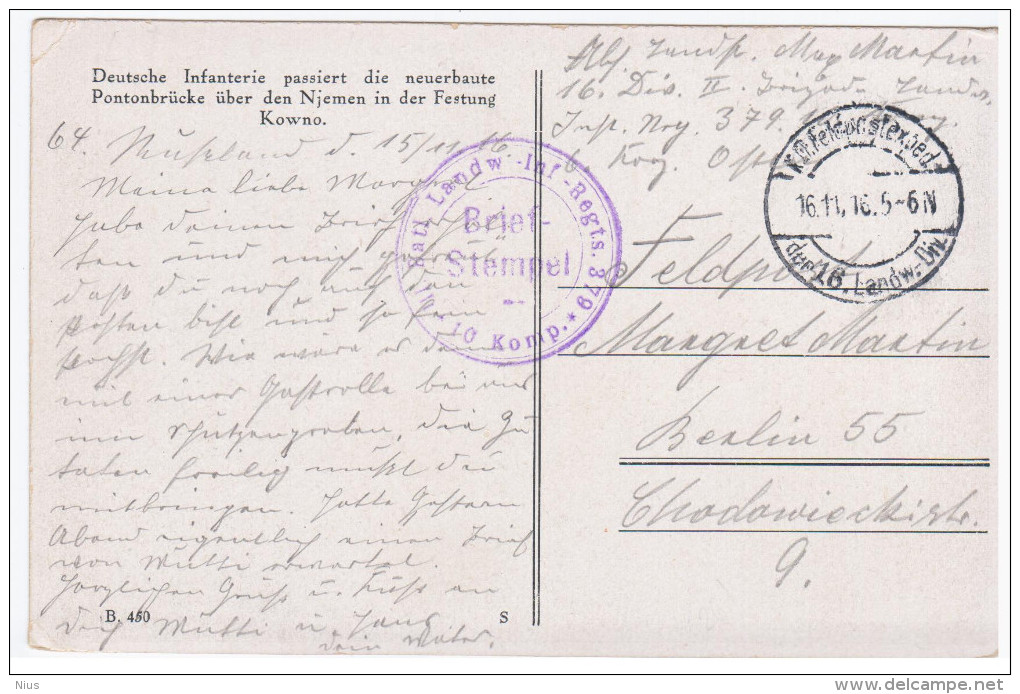 Deutsche Infanterie passiert die neuerbaute
Pontonbrücke über den Njemen in der Festung
Kowno.
64. Rußland d. 15/11 16
Meine liebe
Habe deinen Brief
ten und mich
daß du noch auf dem
Posten bist und so
Wie wäre es denn
mit einer Gastrolle bei uns
im Schützengraben, die Zu
taten freilig mußt du
mitbringen. Hatte Gestern
Abend eigentlich einen Brief
von Mutti erwartet.
Herzlichen Gruß u. Kuß an
dich Mutti u. Hans
dein Vater.
B. 450
S
Abs. Landst. Max Martin
16. Div. II. Brigade Landw.
Inft. Reg. 379.
Feldpost
Margret Martin
Berlin 55
Chodowieckistr.
9.
III Batl Landw.-Inf-Regts. 379
Brief-
Stempel
10 Komp. *
K.D. Feldpostexped.
16.11.16. 5-6 N
der 16. Landw.-Div.
Nius
delcampe.net